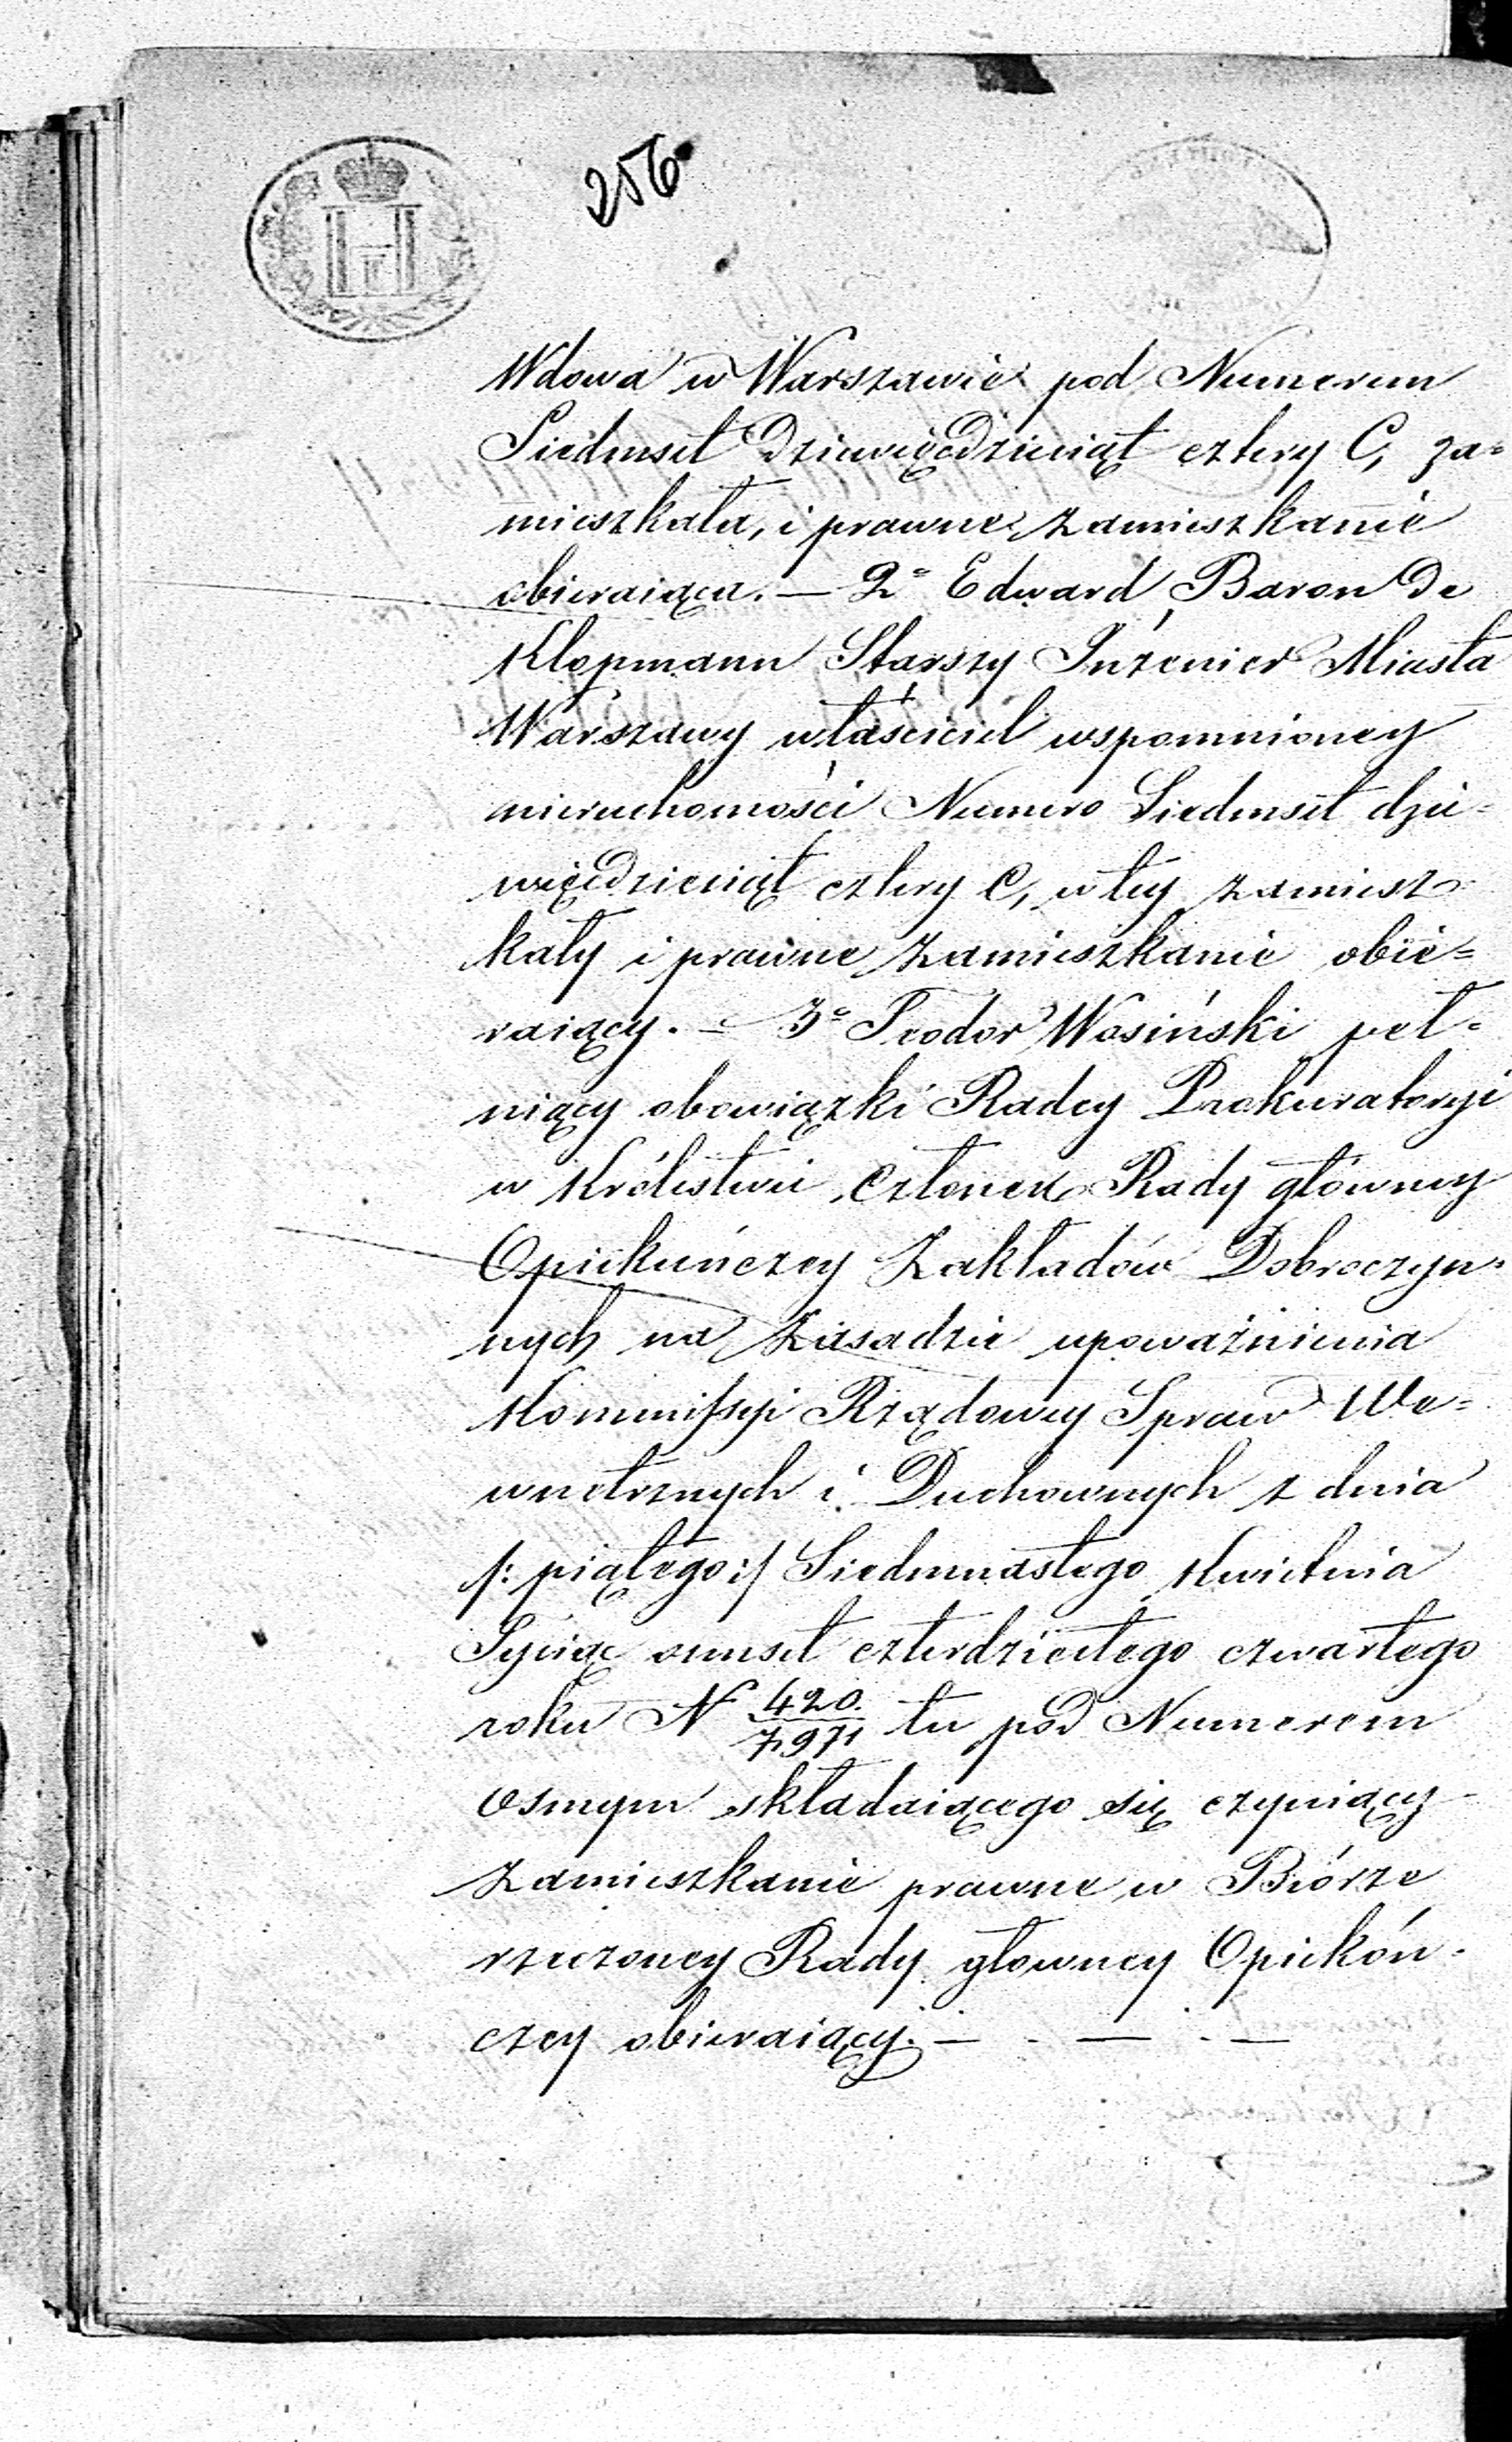 256
Wdowa w Warszawie pod Numerem
Siedmset Dziewięćdziesiąt cztery C, za=
mieszkała, i prawne zamieszkanie
obieraiąca. — 2° Edward Baron De
Klopmann Starszy Inżenier Miasta
Warszawy właściciel wspomnioney
nieruchomości Numero Siedmset dzie=
więćdziesiąt cztery C, w tey zamiesz=
kały i prawne zamieszkanie obie=
raiący. — 3° Teodor Wosiński peł=
niący obowiązki Radcy Prokuratoryi
w Królestwie, Członek Rady główney
Opiekuńczey Zakładów Dobroczyn=
nych na zasadzie upoważnienia
Kommissyi Rządowey Spraw We=
wnetrznych i Duchownych z dnia
/: piątego :/ Siedmnastego Kwietnia
Tysiąc osmset czterdziestego czwartego
roku N 420./7,971 tu pod Numerem
Osmym składaiącego się czyniący
Zamieszkanie prawne w Biórze
rzeczoney Rady głowney Opiekóń=
czey obieraiący. — - — - —